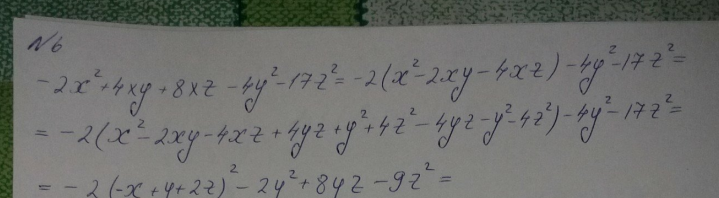 №6
-2x²+4xy+8xz-4y²-17z²=-2(x²-2xy-4xz)-4y²-17z²=
=-2(x²-2xy-4xz+4yz+y²+4z²-4yz-y²-4z²)-4y²-17z²=
=-2(-x+y+2z)²-2y²+8yz-9z²=